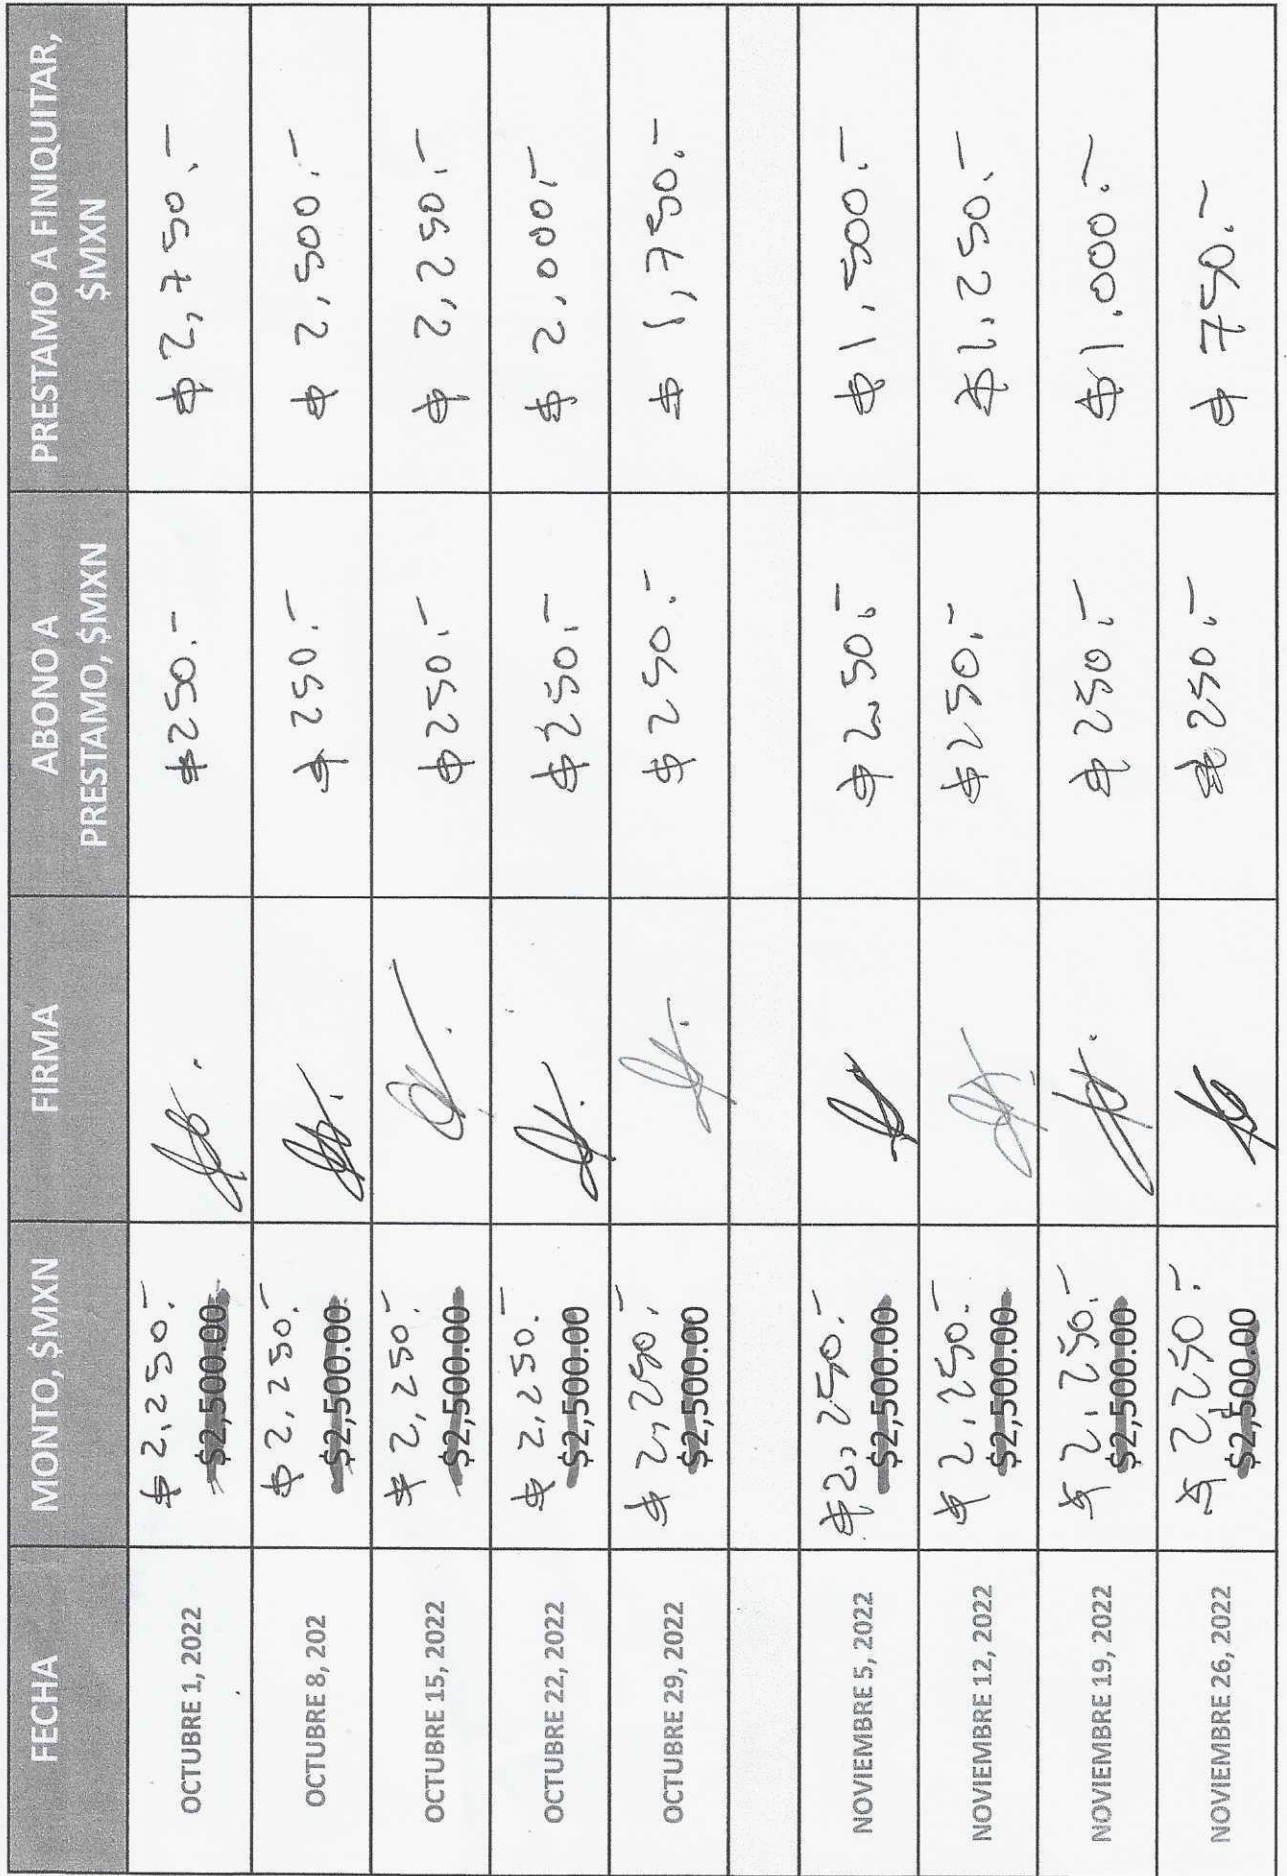 FECHA
MONTO, $MXN
FIRMA
ABONO A
PRESTAMO, $MXN
PRESTAMO A FINIQUITAR,
$MXN
OCTUBRE 1, 2022
$2,250.-
$2,500.00
$250.-
$2,750.-
OCTUBRE 8, 202
$2,250.-
$2,500.00
$250.-
$2,500.-
OCTUBRE 15, 2022
$2,250.-
$2,500.00
$250.-
$2,250.-
OCTUBRE 22, 2022
$2,250.-
$2,500.00
$250.-
$2,000.-
OCTUBRE 29, 2022
$2,250.-
$2,500.00
$250.-
$1,750.-
NOVIEMBRE 5, 2022
$2,250.-
$2,500.00
$250.-
$1,500.-
NOVIEMBRE 12, 2022
$2,250.-
$2,500.00
$250.-
$1,250.-
NOVIEMBRE 19, 2022
$2,250.-
$2,500.00
$250.-
$1.000.-
NOVIEMBRE 26, 2022
$2,250.-
$2,500.00
$250.-
$750.-